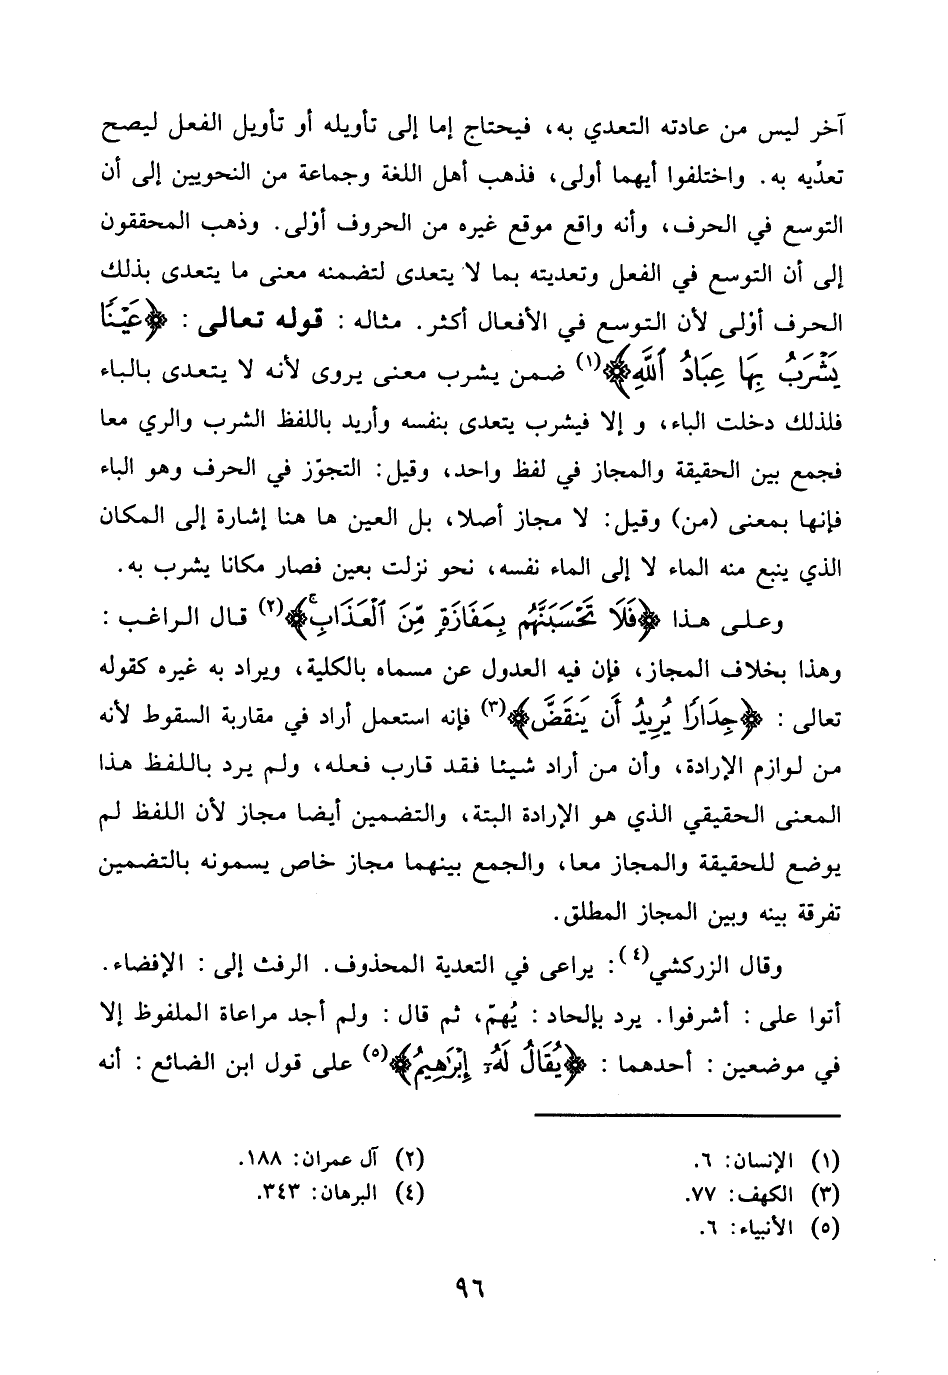 آخر ليس من عادته التعدي به، فيحتاج إما إلى تأويله أو تأويل الفعل ليصح
تعدّيه به. واختلفوا أيهما أولى، فذهب أهل اللغة وجماعة من النحويين إلى أن
التوسع في الحرف، وأنه واقع موقع غيره من الحروف أوْلى. وذهب المحققون
إلى أن التوسع في الفعل وتعديته بما لا يتعدى لتضمنه معنى ما يتعدى بذلك
الحرف أوْلى لأن التوسع في الأفعال أكثر. مثاله : قوله تعالى : ﴿عَيْنًا
يَشْرَبُ بِهَا عِبَادُ ٱللَّهِ﴾(١) ضمن يشرب معنى يروى لأنه لا يتعدى بالباء
فلذلك دخلت الباء، و إلا فيشرب يتعدى بنفسه وأريد باللفظ الشرب والري معا
فجمع بين الحقيقة والمجاز في لفظ واحد، وقيل: التجوّز في الحرف وهو الباء
فإنها بمعنى (من) وقيل: لا مجاز أصلا، بل العين ها هنا إشارة إلى المكان
الذي ينبع منه الماء لا إلى الماء نفسه، نحو نزلت بعين فصار مكانا يشرب به.
وعلى هذا ﴿فَلَا تَحْسَبَنَّهُم بِمَفَازَةٍ مِّنَ ٱلْعَذَابِۚ﴾(٢) قال الراغب :
وهذا بخلاف المجاز، فإن فيه العدول عن مسماه بالكلية، ويراد به غيره كقوله
تعالى : ﴿جِدَارًا يُرِيدُ أَن يَنقَضَّ﴾(٣) فإنه استعمل أراد في مقاربة السقوط لأنه
من لوازم الإرادة، وأن من أراد شيئا فقد قارب فعله، ولم يرد باللفظ هذا
المعنى الحقيقي الذي هو الإرادة البتة، والتضمين أيضا مجاز لأن اللفظ لم
يوضع للحقيقة والمجاز معا، والجمع بينهما مجاز خاص يسمونه بالتضمين
تفرقة بينه وبين المجاز المطلق.
وقال الزركشي(٤): يراعى في التعدية المحذوف. الرفث إلى : الإفضاء.
أتوا على : أشرفوا. يرد بإلحاد : يُهمّ، ثم قال : ولم أجد مراعاة الملفوظ إلا
في موضعين : أحدهما : ﴿يُقَالُ لَهُۥٓ إِبْرَٰهِيمُ﴾(٥) على قول ابن الضائع : أنه
(١) الإنسان: ٦.
(٢) آل عمران: ١٨٨.
(٣) الكهف: ٧٧.
(٤) البرهان: ٣٤٣.
(٥) الأنبياء: ٦.
٩٦